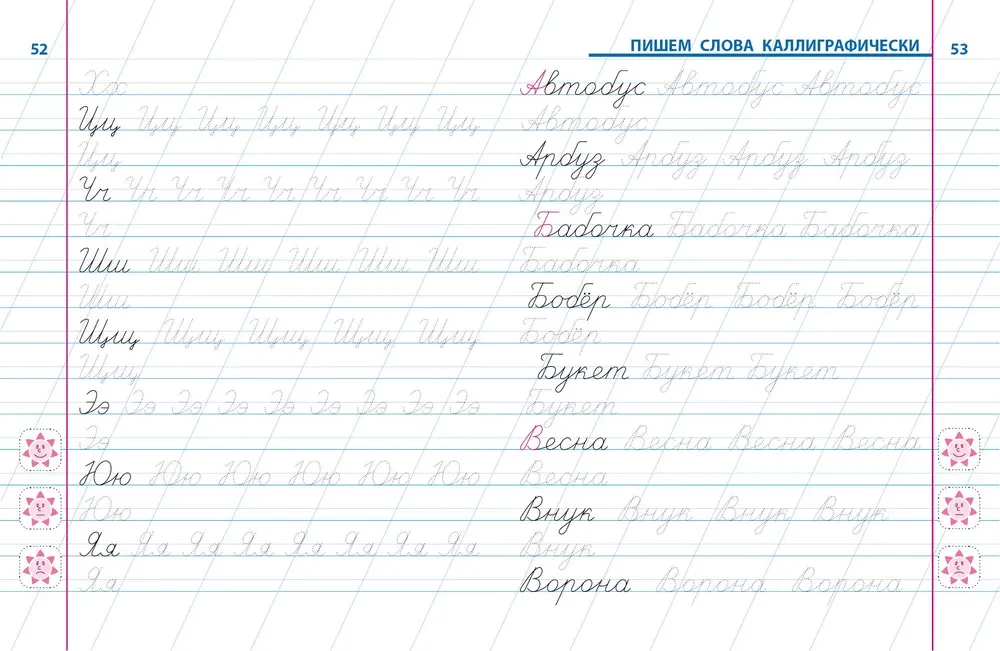 52
Хх
Цц Цц Цц Цц Цц Цц Цц
Цц
Чч Чч Чч Чч Чч Чч Чч Чч Чч
Чч
Шш Шш Шш Шш Шш Шш
Шш
Щщ Щщ Щщ Щщ Щщ
Щщ
Ээ Ээ Ээ Ээ Ээ Ээ Ээ Ээ Ээ
Ээ
Юю Юю Юю Юю Юю Юю
Юю
Яя Яя Яя Яя Яя Яя Яя Яя Яя
Яя
ПИШЕМ СЛОВА КАЛЛИГРАФИЧЕСКИ 53
Автобус Автобус Автобус
Автобус
Арбуз Арбуз Арбуз Арбуз
Арбуз
Бабочка Бабочка Бабочка
Бабочка
Бобёр Бобёр Бобёр Бобёр
Бобёр
Букет Букет Букет
Букет
Весна Весна Весна Весна
Весна
Внук Внук Внук Внук
Внук
Ворона Ворона Ворона